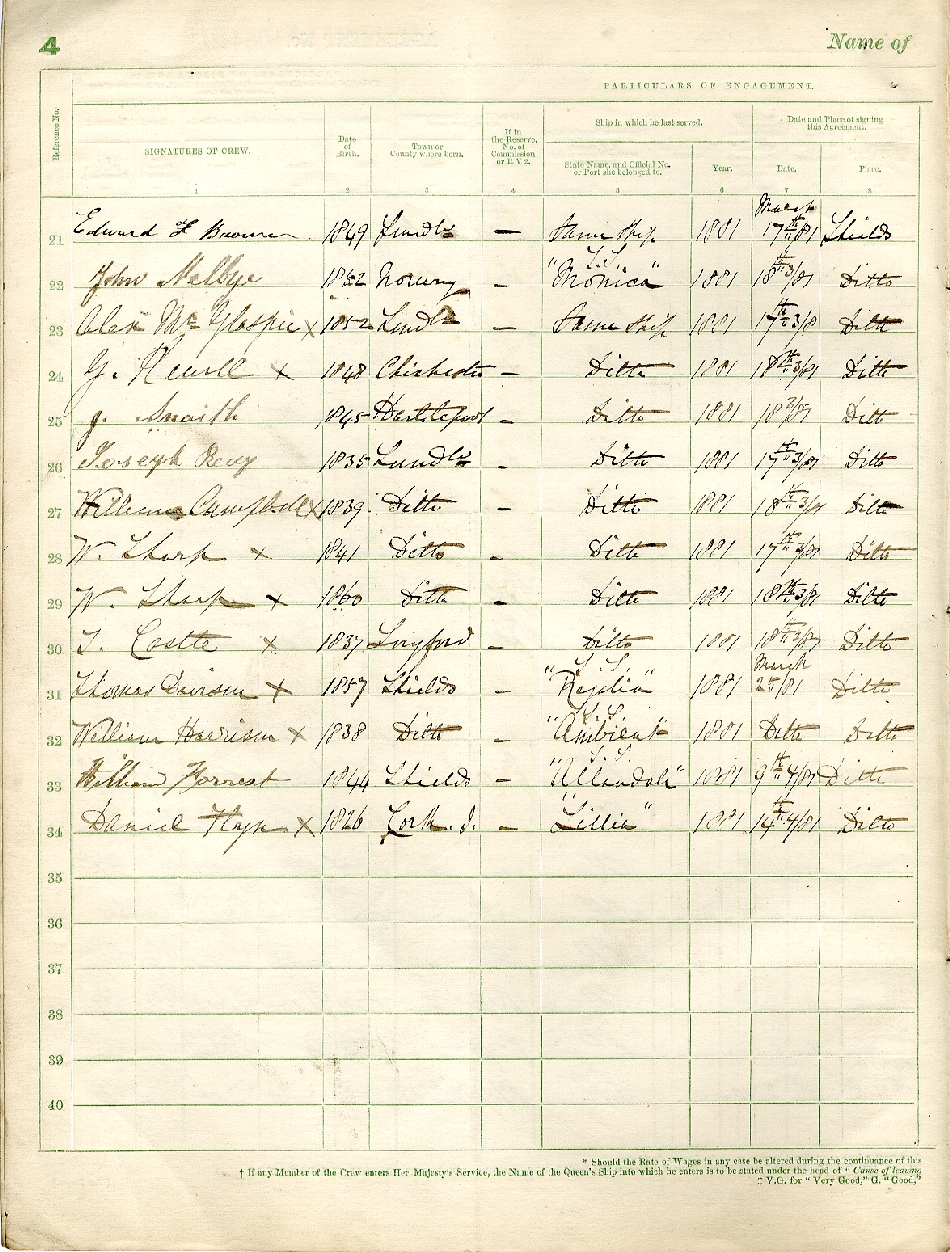 4 Name of
PARTICULARS OF ENGAGEMENT.
Reference No. SIGNATURES OF CREW. Date of Birth. Town or County where born. If in the Reserve, No. of Commission or R.V 2. Ship in which he last served. Date and Place of signing this Agreement.
State Name, and Official No. or Port she belonged to. Year. Date. Place.
1 2 3 4 5 6 7 8
21 Edward 1849 — Same Ship 1881 March 17th/81 Shields
22 John Melbye 1852 Norway – "S.S. Monica" 1881 18th 3/81 Ditto
23 Alex Mc Glaspie x 1852 – Same Ship 1881 17th 3/81 Ditto
24 G. Newell x 1848 Chichester – Ditto 1881 18th 3/81 Ditto
25 J. Smaith 1845 Hartlepool – Ditto 1881 18 3/81 Ditto
26 Joseph 1835 – Ditto 1881 17th 3/81 Ditto
27 William Campbell x 1839 Ditto – Ditto 1881 18th 3/81 Ditto
28 W. Tharp x 1841 Ditto – Ditto 1881 17th 3/81 Ditto
29 W. Tharp x 1860 Ditto – Ditto 1881 18th 3/81 Ditto
30 T. Costle x 1837 Longford – Ditto 1881 18th 3/81 Ditto
31 Thomas Davison x 1857 Shields – "S.S. Regalia" 1881 March /81 Ditto
32 William Harrison x 1838 Ditto – "S.S. Ambient" 1881 Ditto Ditto
33 William Forrest 1844 Shields – "S.S. Allendale" 1881 9th 4/81 Ditto
34 Daniel x 1826 Cork. I. – "Lillie" 1881 14th 4/81 Ditto
35
36
37
38
39
40
* Should the Rate of Wages in any case be altered during the continuance of this
† If any Member of the Crew enters Her Majesty's Service, the Name of the Queen's Ship into which he enters is to be stated under the head of "Cause of leaving
‡ V.G. for "Very Good," G. "Good,"